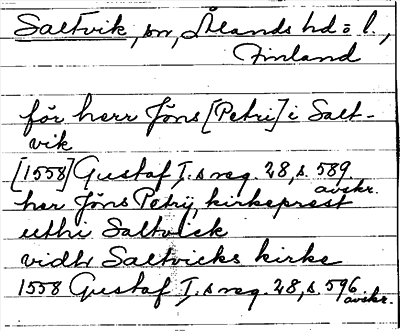 Saltvik, sn, Ålands hd o l.,
Finland
för herr Jöns [Petri] i Salt-
vik
[1558] Gustaf I.s reg. 28, s. 589
avskr.
her Jöns Petrij, kirkeprest
uthi Saltvick
vidh Saltvicks kirke
1558 Gustaf I.s reg. 28, s. 596.
avskr.